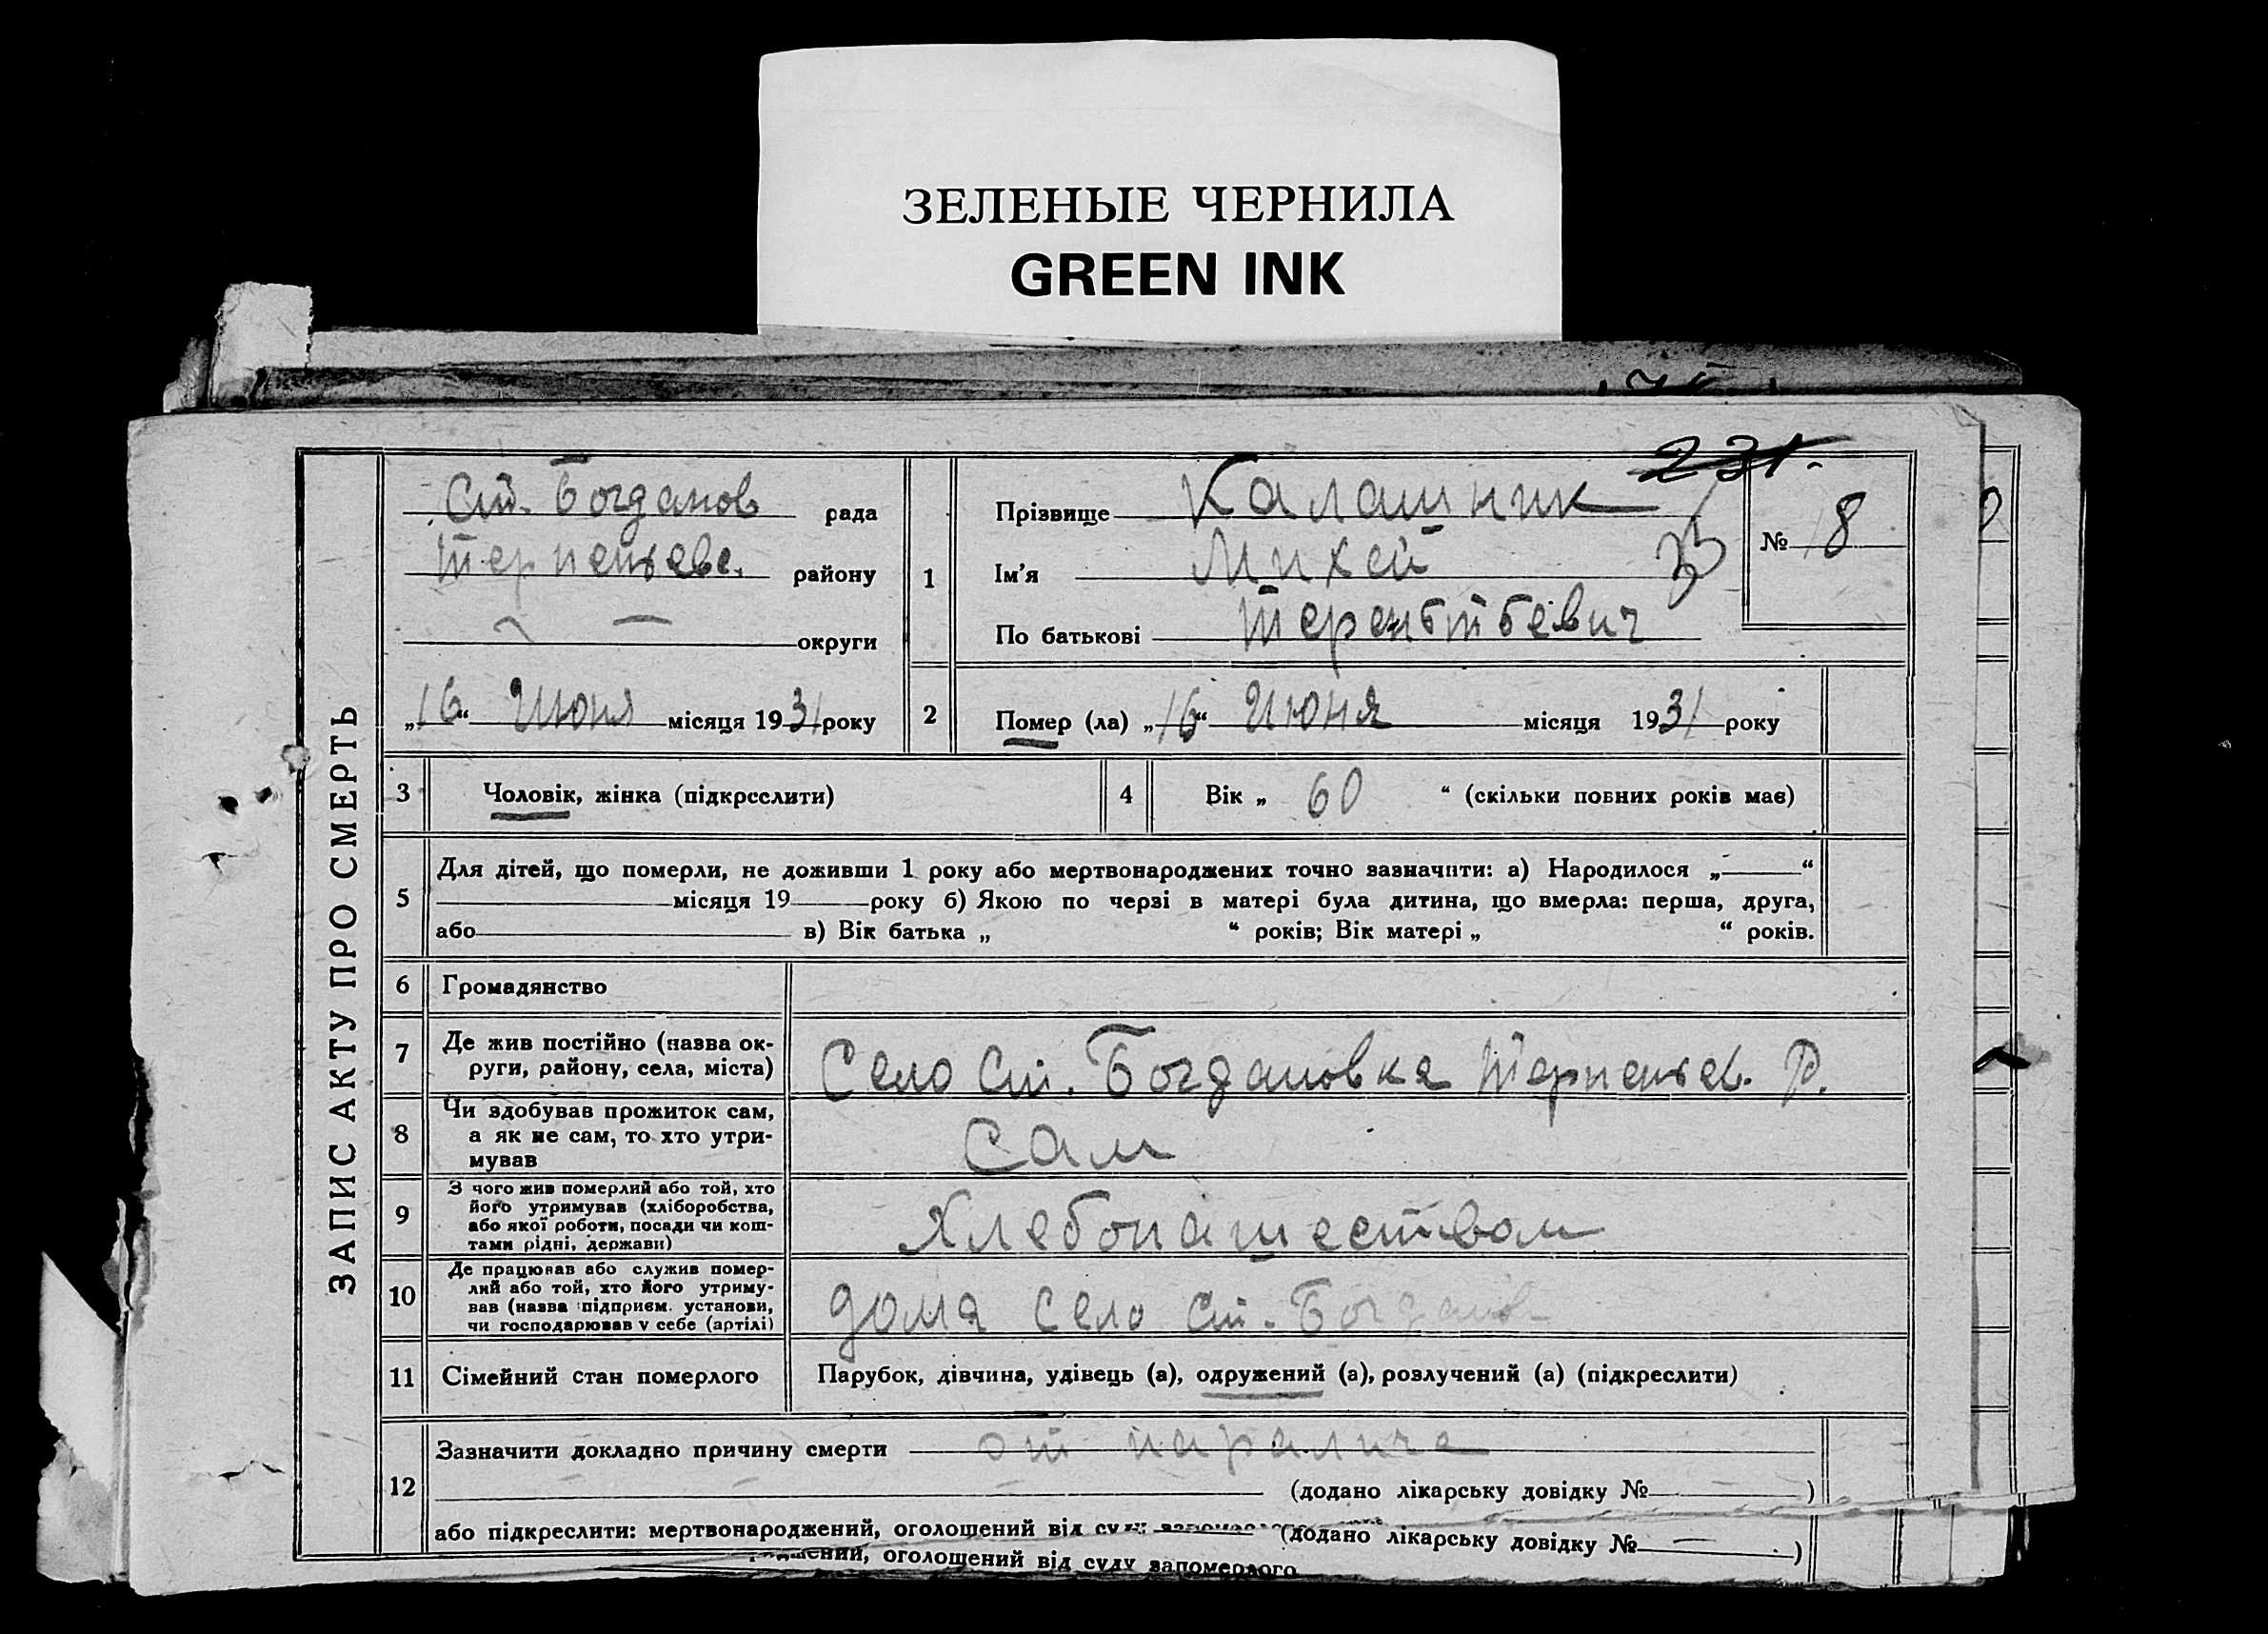 ЗЕЛЕНЫЕ ЧЕРНИЛА
GREEN INK
ЗАПИС АКТУ ПРО СМЕРТЬ
Ст. Богданов рада
Терпеньевс. району
округи
„16“ Июня місяця 1931 року
1
Прізвище Калашник
Ім'я Михей
По батькові Терентьевич
231.
№ 8
2
Помер (ла) „16“ Июня місяця 1931 року
3 Чоловік, жінка (підкреслити)
4 Вік „ 60 “ (скільки повних років має)
5
Для дітей, що померли, не доживши 1 року або мертвонароджених точно зазначити: а) Народилося „ “
місяця 19 року б) Якою по черзі в матері була дитина, що вмерла: перша, друга,
або в) Вік батька „ “ років; Вік матері „ “ років.
6 Громадянство
7 Де жив постійно (назва ок-
руги, району, села, міста)
Село Ст. Богдановка Терпеньев. Р.
8 Чи здобував прожиток сам,
а як не сам, то хто утри-
мував
Сам
9 З чого жив померлий або той, хто
його утримував (хліборобства,
або якої роботи, посади чи кош-
тами рідні, держави)
Хлебопашеством
10 Де працював або служив помер-
лий або той, хто його утриму-
вав (назва підприєм. установи,
чи господарював у себе (артілі)
дома село Ст. Богданов
11 Сімейний стан померлого
Парубок, дівчина, удівець (а), одружений (а), розлучений (а) (підкреслити)
12
Зазначити докладно причину смерти от паралича
(додано лікарську довідку № )
або підкреслити: мертвонароджений, оголошений від суду
(додано лікарську довідку № )
оголошений від суду запомерлого